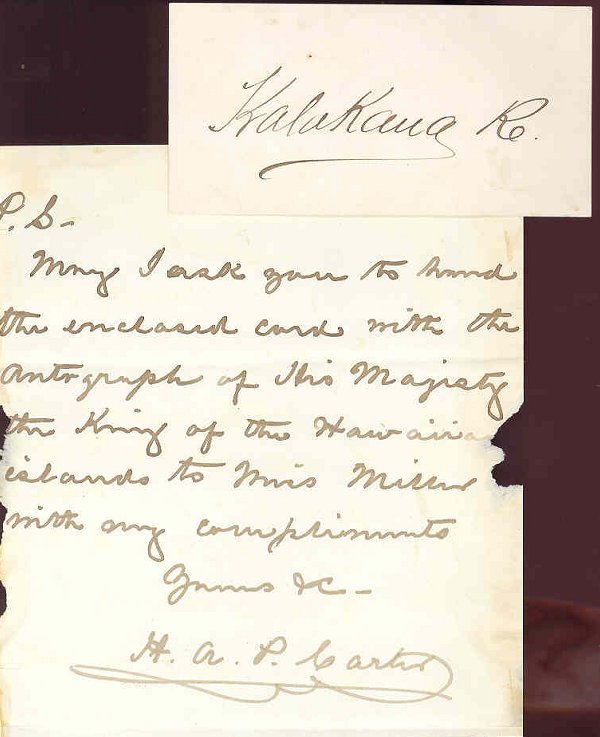 Kalakaua R.
P.S-
May I ask you to hand
the enclosed card with the
Autograph of His Majesty
the King of the Hawaiia
islands to Miss Miller
with my compliments
Yours &c-
H. A. P. Carter